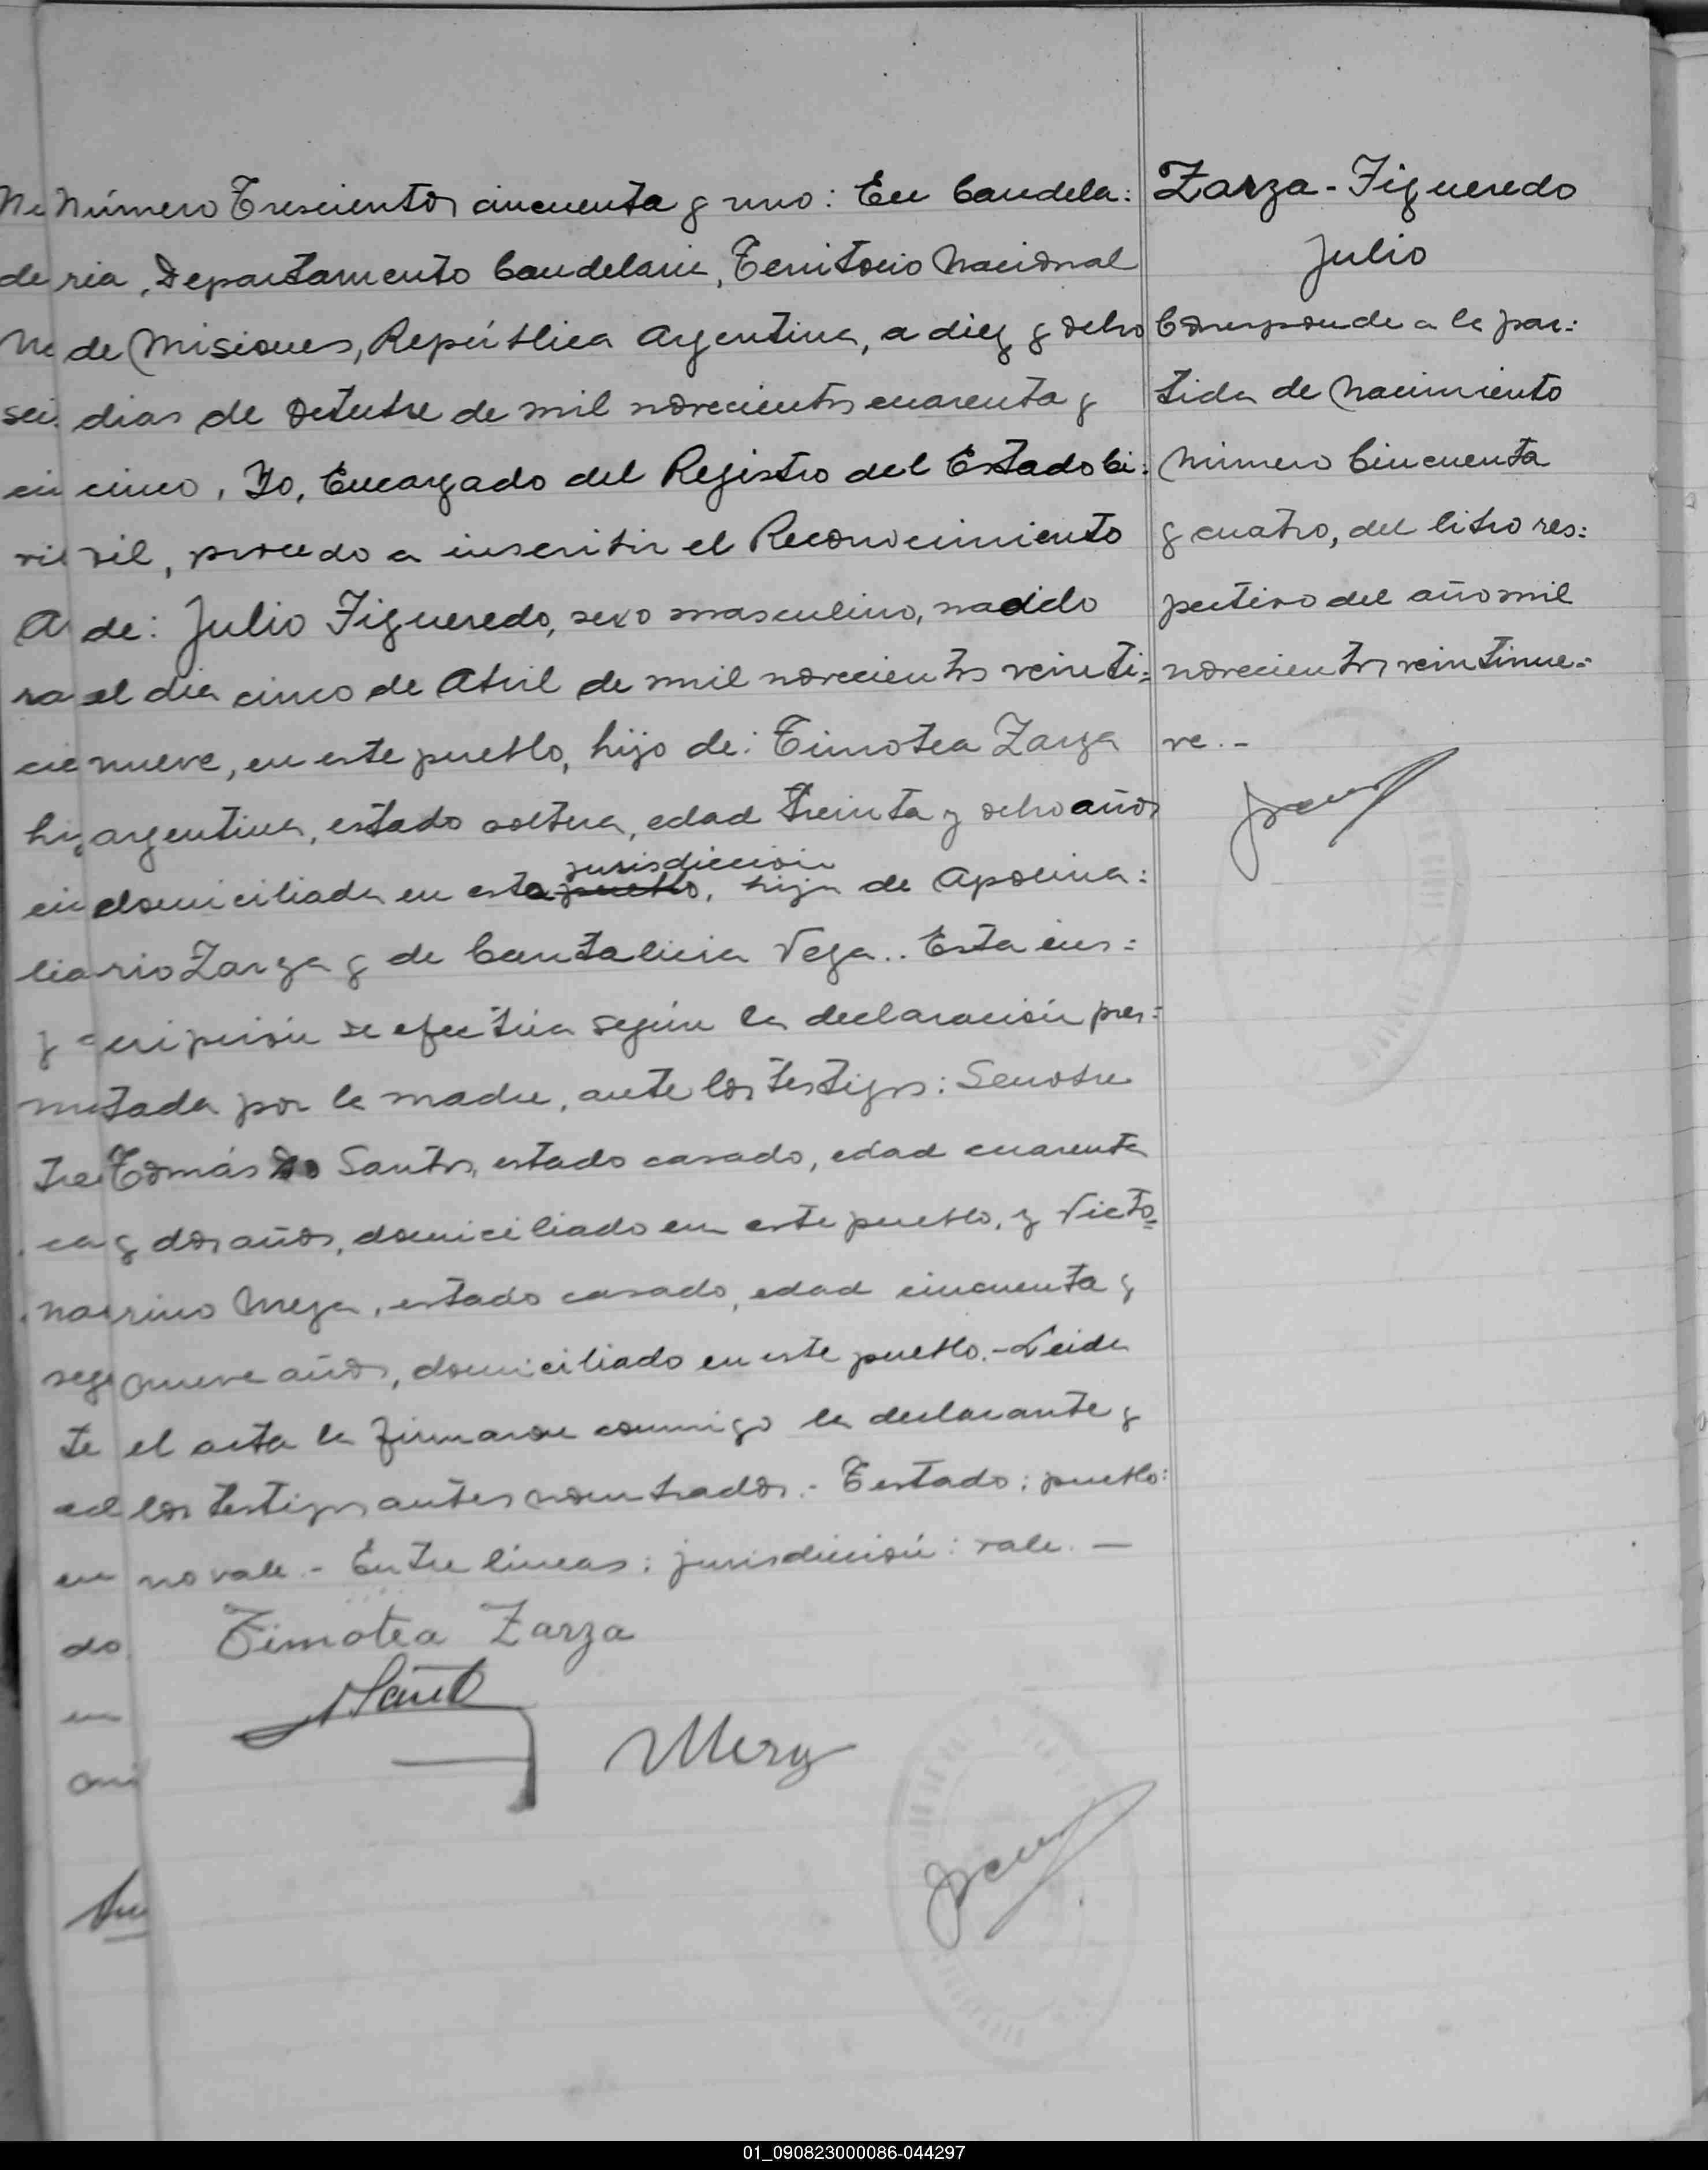 Número Trescientos cincuenta y uno: En Candela:
ria, Departamento Candelaria, Territorio Nacional
de Misiones, República Argentina, a diez y ocho
dias de Octubre de mil novecientos cuarenta y
cinco, Yo, Encargado del Registro del Estado Ci:
vil, procedo a inscribir el Reconocimiento
de: Julio Figueredo, sexo masculino, nacido
el dia cinco de Abril de mil novecientos veinti=
nueve, en este pueblo, hijo de: Timotea Zarza
argentina, estado soltera, edad treinta y ocho años
jurisdicción
domiciliada en esta pueblo, hija de Apolina:
rio Zarza y de Cantalicia Vega.. Esta ins=
cripción se efectúa según la declaración pre=
tada por la madre, ante los testigos:
Tomás Do Santos, estado casado, edad cuarenta
y dos años, domiciliado en este pueblo, y Victo=
rino Meza, estado casado, edad cincuenta y
nueve años, domiciliado en este pueblo.- Leida
el acta la firmaron conmigo la declarante y
los testigos antes nombrados.- Testado: pueblo:
no vale - Entre líneas: jurisdicción: vale. —
Timotea Zarza
VMeza
Zarza - Figueredo
Julio
Corresponde a la par:
tida de Nacimiento
Número Cincuenta
y cuatro, del libro res:
pectivo del año mil
novecientos veintinue=
ve. -
Ne
de
Ne
sei
ci
vil
A
ra
cie
hi
en
lia
y
me
tre
ca
na
sege
te
el
en
do
en
01_090823000086-044297